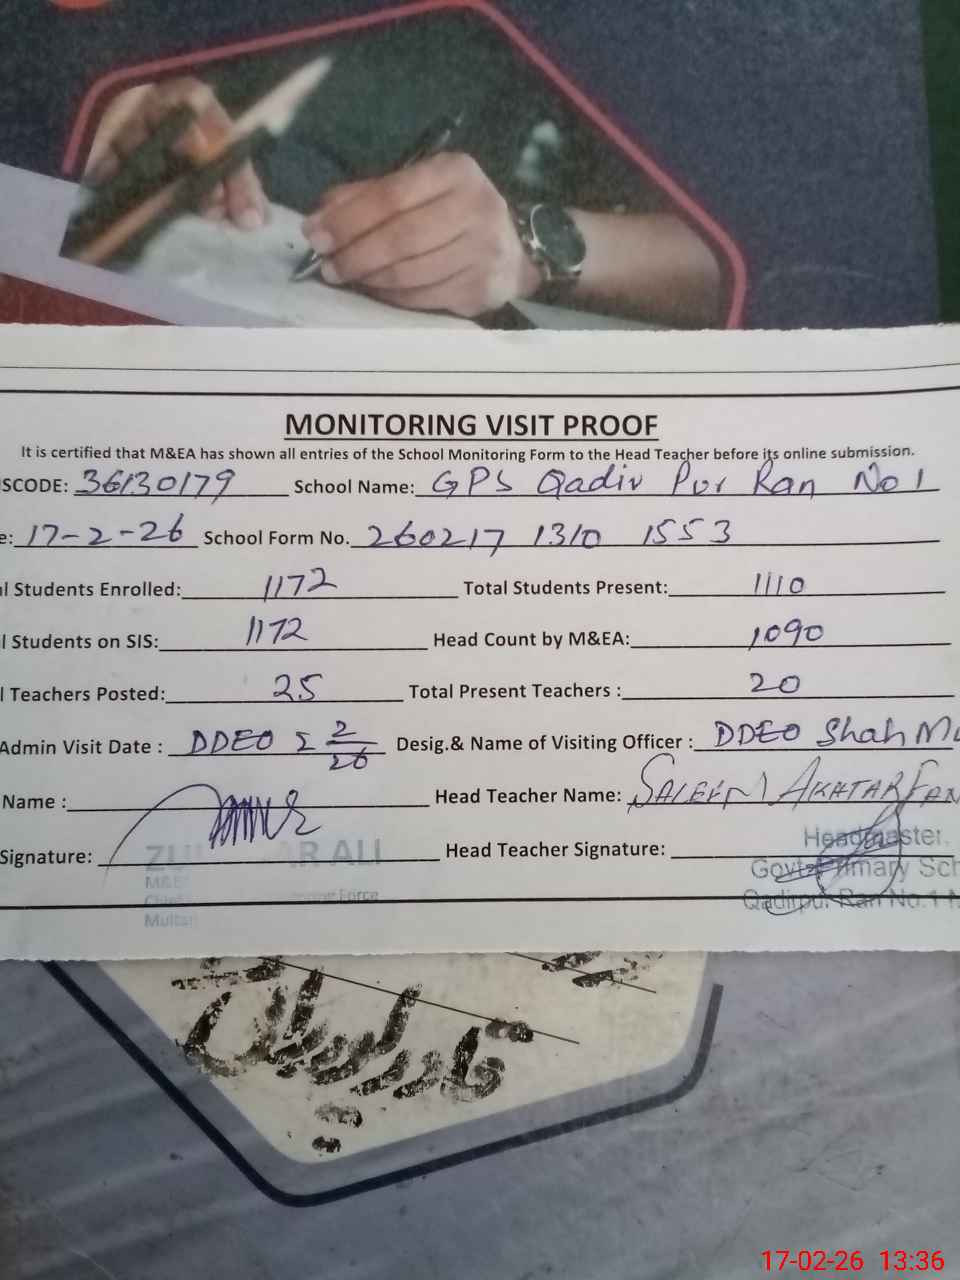 MONITORING VISIT PROOF
It is certified that M&EA has shown all entries of the School Monitoring Form to the Head Teacher before its online submission.
SCODE: 36130179 School Name: GPS Qadir Pur Ran No 1
e: 17-2-26 School Form No. 260217 1310 1553
l Students Enrolled: 1172 Total Students Present: 1110
l Students on SIS: 1172 Head Count by M&EA: 1090
l Teachers Posted: 25 Total Present Teachers : 20
Admin Visit Date : DDEO 2/26 Desig.& Name of Visiting Officer : DDEO Shah
Name : Head Teacher Name: SALEEM AKHTAR
Signature: Head Teacher Signature:
AR ALI
Headmaster
Govt. Primary Sch
Multan
Qadirpur Ran No.1
قادرپورراں
17-02-26 13:36